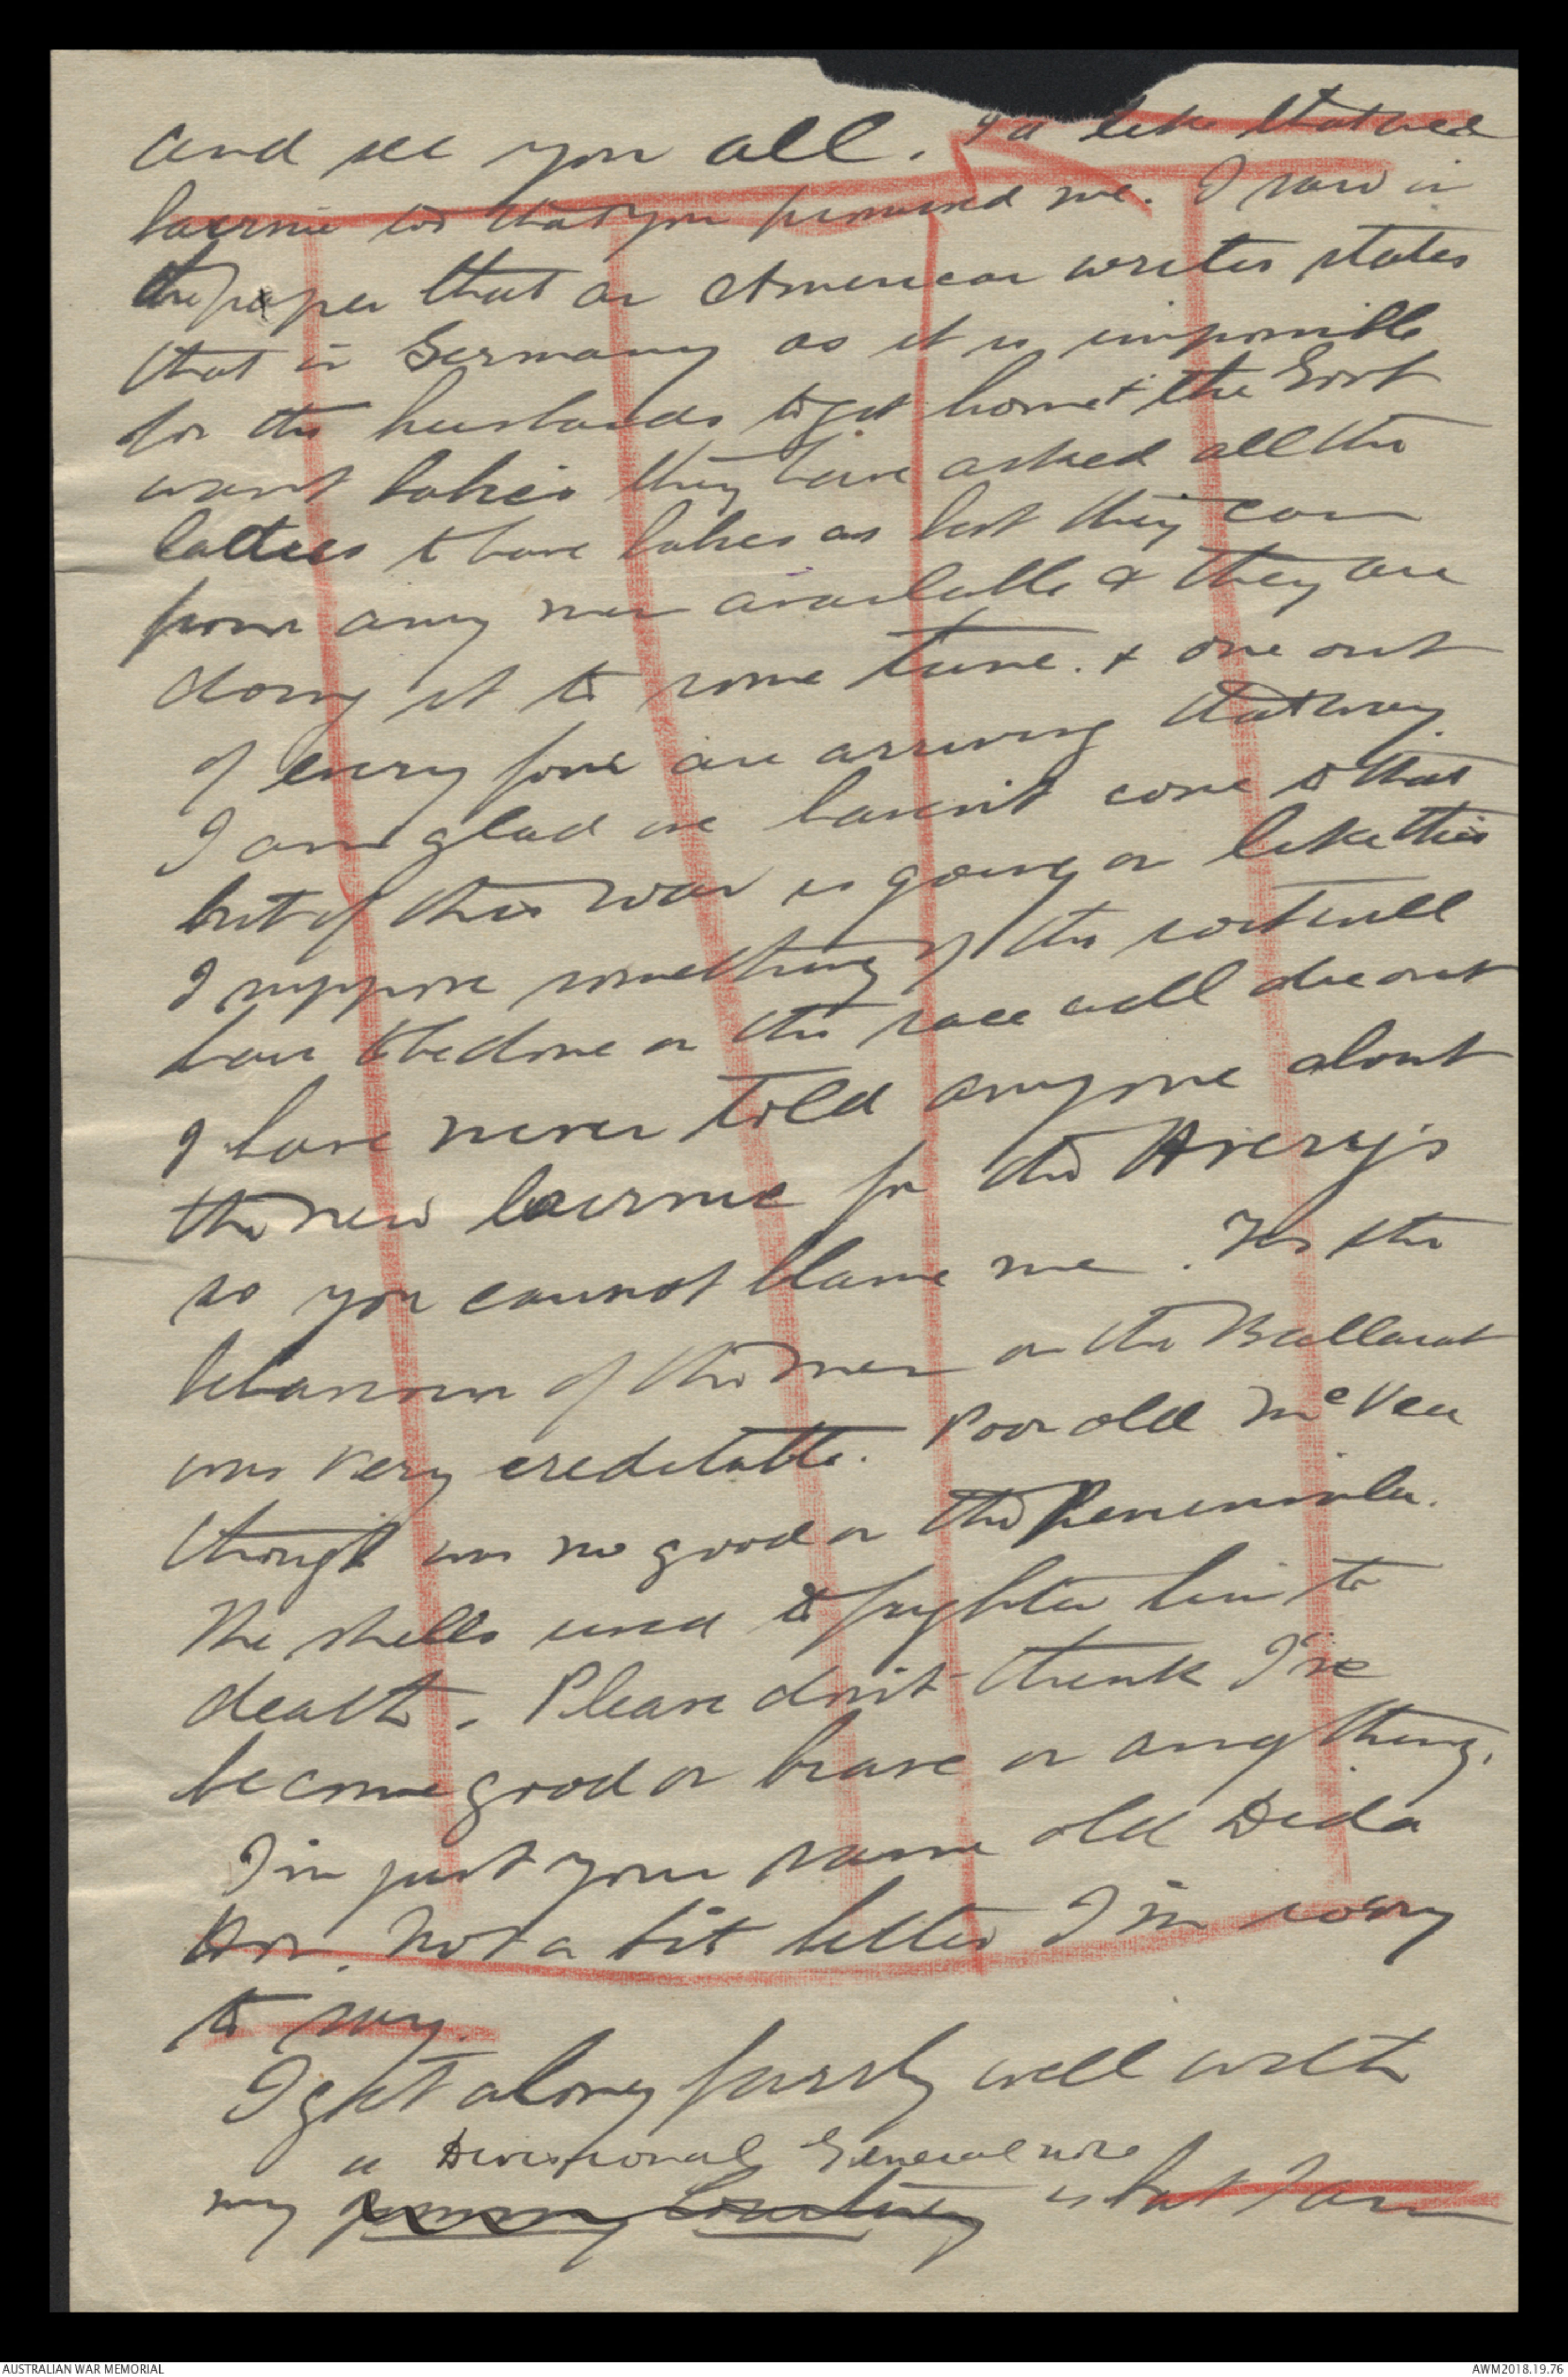 and see you all. I'd like that wee
too that you promised me. I saw in
the paper that an American writer states
that in Germany as it is impossible
for the husbands to get home & the Govt
want babies they have asked all the
ladies to have babies as best they can
from any man available & they are
doing it to some tune. & one out
of every four are arriving that way
I am glad we haven't come to that
but if this war is going on like this
I suppose something of the sort will
have to be done or the race will die out
I have never told anyone about
the new for the Avery's
so you cannot blame me. Yes the
behaviour of the men on the Ballarat
was very creditable. Poor old McVea
though was no good on the Peninsula.
The shells used to frighten him to
death. Please don't think I've
become good or brave or anything.
I'm just your same old Dida
Hor. Not a bit better I'm sorry
to say.
I get along fairly well with
a Divisional General now
my is but I am
AUSTRALIAN WAR MEMORIAL
AWM2018.19.76